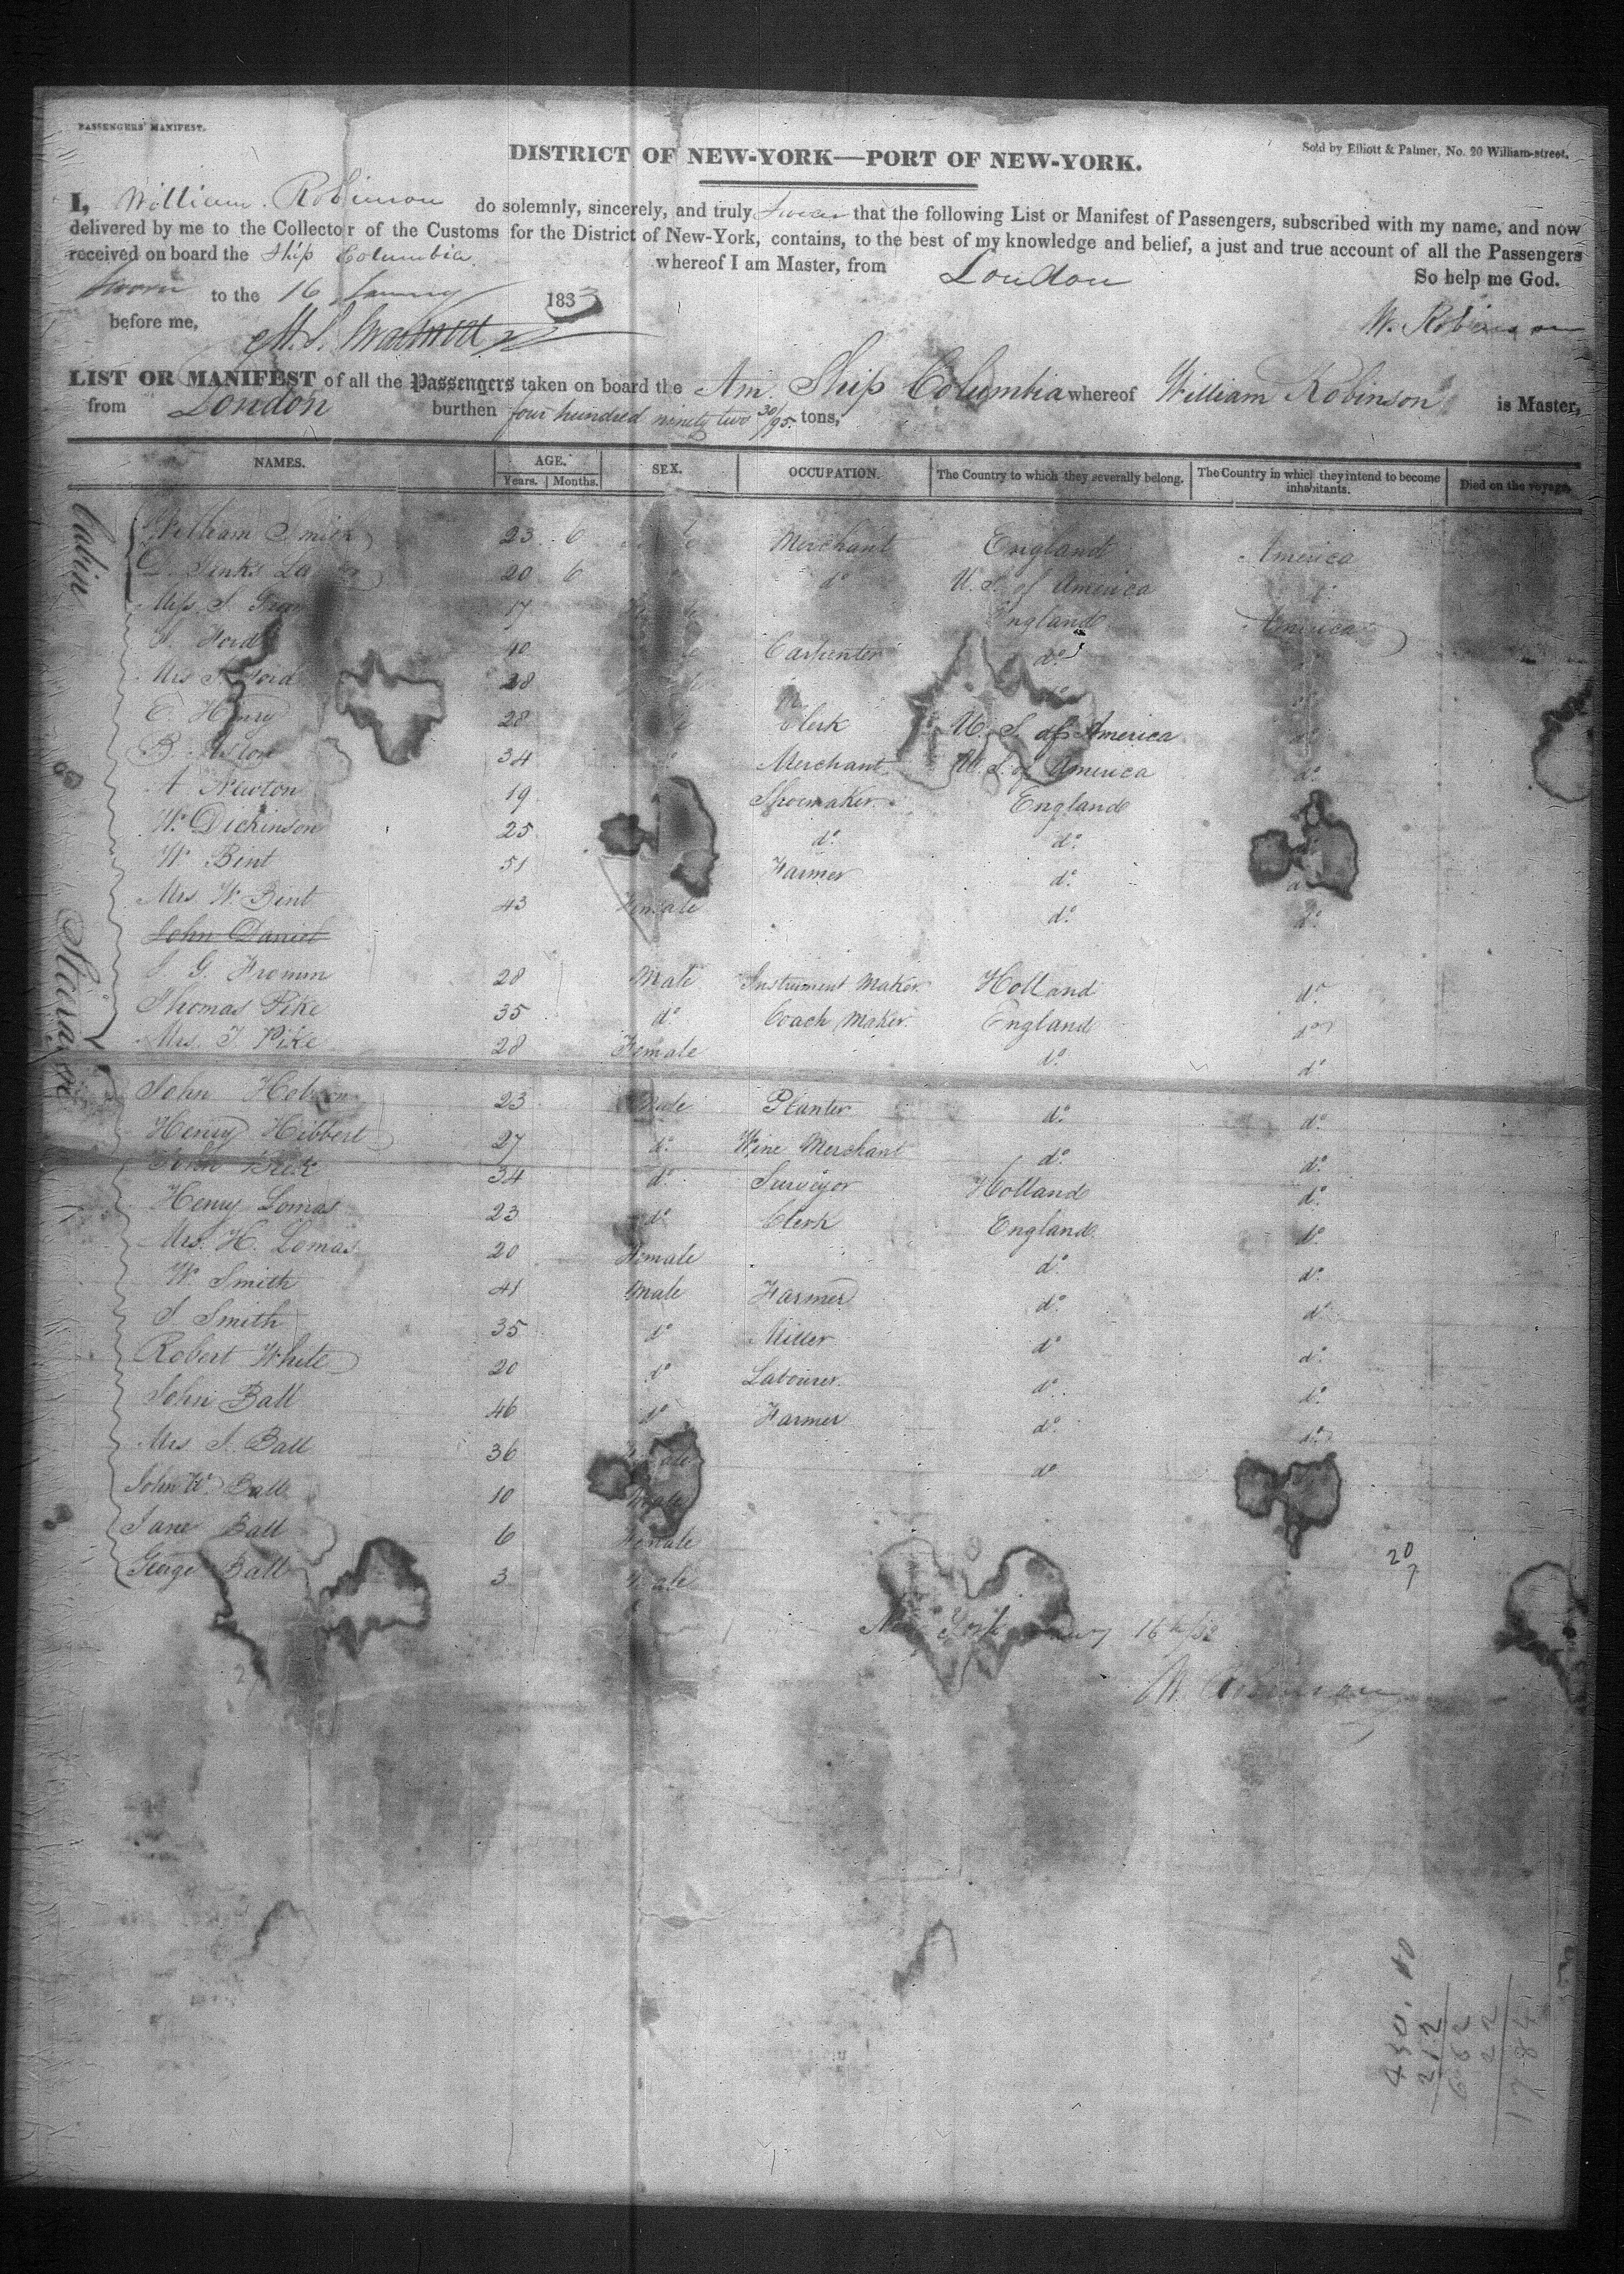 PASSENGERS' MANIFEST.
Sold by Elliott & Palmer, No. 20 William-street.
DISTRICT OF NEW-YORK—PORT OF NEW-YORK.
I, William Robinson do solemnly, sincerely, and truly swear that the following List or Manifest of Passengers, subscribed with my name, and now
delivered by me to the Collector of the Customs for the District of New-York, contains, to the best of my knowledge and belief, a just and true account of all the Passengers
received on board the Ship Columbia whereof I am Master, from London
So help me God.
Sworn to the 16 January 1833
before me,
W. Robinson
LIST OR MANIFEST of all the Passengers taken on board the Am. Ship Columbia whereof William Robinson is Master,
from London burthen four hundred ninety two 30/95 tons,
NAMES. AGE. SEX. OCCUPATION. The Country to which they severally belong. The Country in which they intend to become inhabitants. Died on the voyage.
Years. Months.
Cabin
William Smith 23 6 Merchant England America
D. Jenks 20 6 do U. S. of America
Miss S. 17 England America
Ford 40 Carpenter do
Mrs Ford 28
C. Henry 28 Clerk U. S. of America
B. 34 Merchant U. S. of America do
A Newton 19 Shoemaker England
W. Dickinson 25 do do
W Bint 51 Farmer do
Mrs W Bint 43 Female do do
Steerage
John Daniel
J. G. Fromm 28 Male Instrument Maker Holland do
Thomas Pike 35 do Coach Maker England do
Mrs. T. Pike 28 Female do do
John 23 Male Planter do do
Henry Hibbert 27 do Wine Merchant do do
John 34 do Surveyor Holland do
Henry Lomas 23 do Clerk England do
Mrs. H. Lomas 20 Female do do
W. Smith 41 Male Farmer do do
J Smith 35 do Miller do do
Robert White 20 do Labourer do do
John Ball 46 do Farmer do do
Mrs J. Ball 36 Female do
John W. Ball 10 Male
Jane Ball 6 Female
George Ball 3 Male
20
7
New York 16th
W. Robinson
450. 40
212
662
22